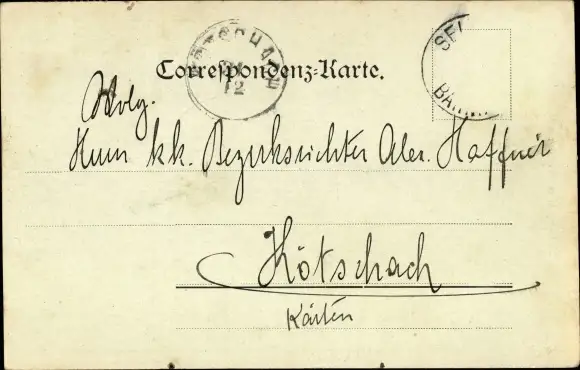 Correspondenz-Karte.
Wolg.
Herrn kk. Bezirksrichter Alex. Haffner
Kötschach
Kärnten